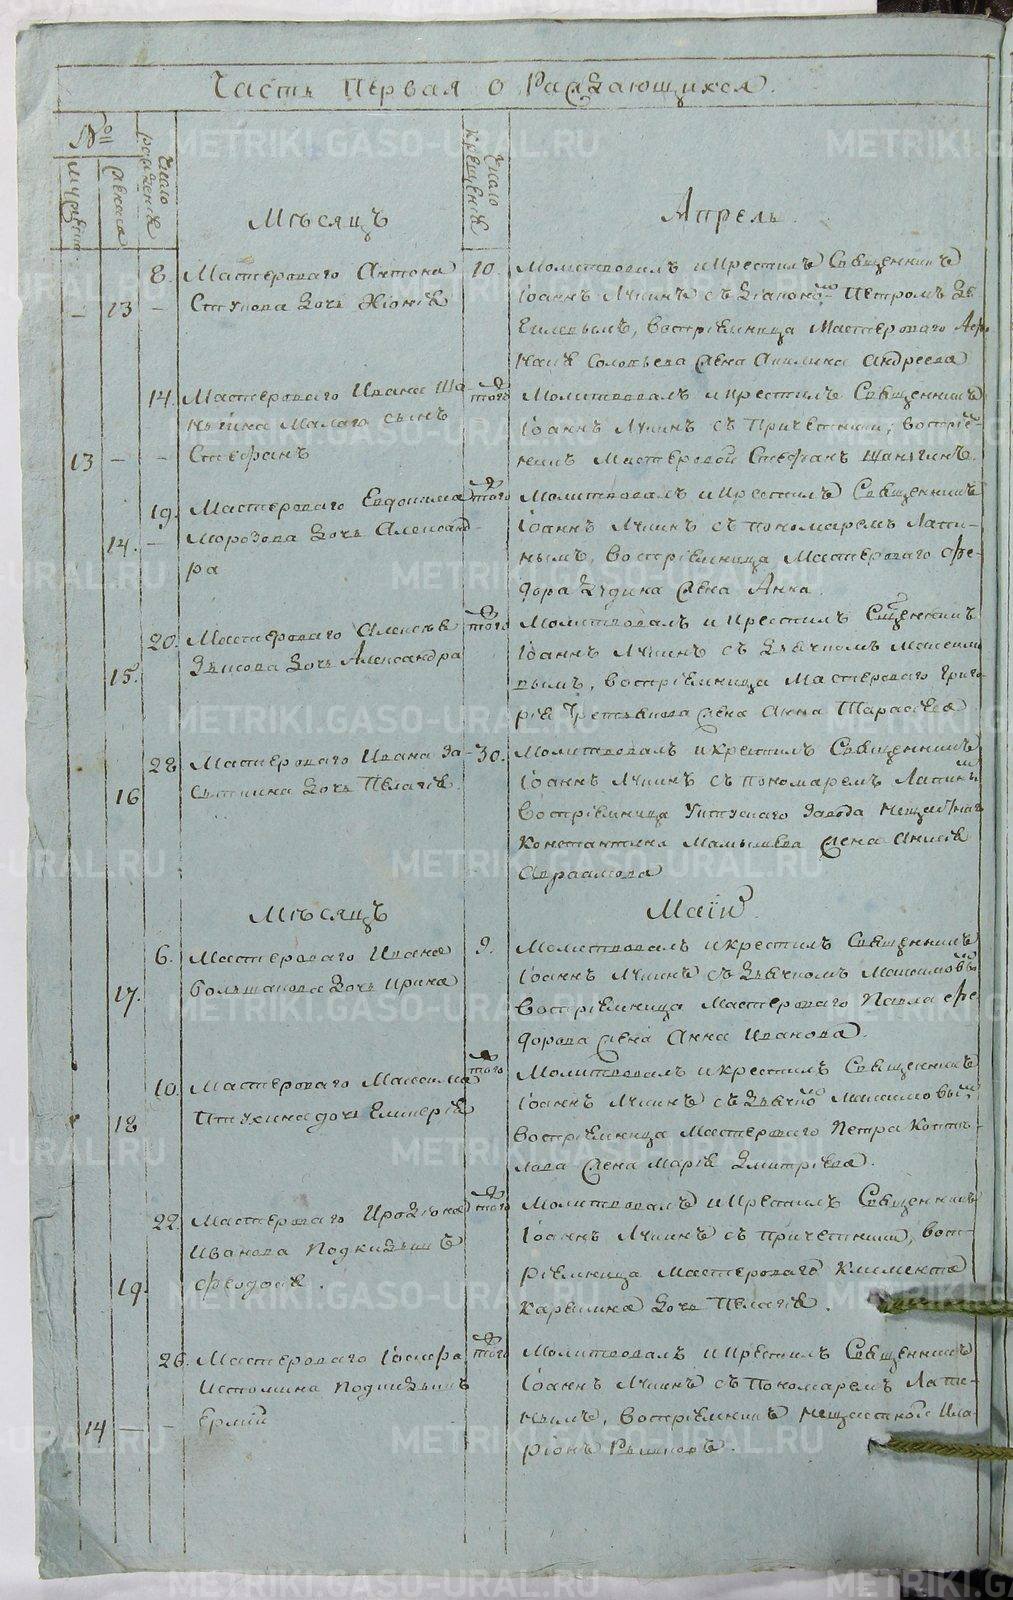 Часть Первая о Раждающихся.
№
мужеска
женска
Число рождения
Число крещения
Мѣсяцъ
Апрель.
13
8.
Мастероваго Антона
дочь Хіонія
10.
Молитвовалъ и Крестилъ Священникъ
Іоаннъ Лукинъ съ діакономъ Петромъ
воспріемница Мастероваго
Соловьева жена Акилина Андреева
13
14.
Мастероваго Ивана Ша-
ньгина Малаго сынъ
Стефанъ
того
Молитвовалъ и Крестилъ Священникъ
Іоаннъ Лукинъ съ Причетники, воспріе-
никъ Мастеровой Стефанъ Шаньгинъ.
14.
19.
Мастероваго Евдокима
Морозова дочь Александ-
ра
того
Молитвовалъ и Крестилъ Священникъ
Іоаннъ Лукинъ съ пономаремъ Лапи-
нымъ, воспріемница Мастероваго Фе-
дора жена Анна.
15.
20.
Мастероваго Алексѣя
дочь Александра
того
Молитвовалъ и Крестилъ Священникъ
Іоаннъ Лукинъ съ дьячкомъ Максимо-
вымъ, воспріемница Мастероваго Григо-
рія Третьякова жена Анна Тарасова
16
28
Мастероваго Ивана За-
сыпкина дочь Пелагія.
30.
Молитвовалъ и крестилъ Священникъ
Іоаннъ Лукинъ съ пономаремъ Лапинымъ
воспріемница Уктускаго Завода
Константина жена
Авраамова
Мѣсяцъ
Маій.
17.
6.
Мастероваго Ивана
Большакова дочь Ирина
9.
Молитвовалъ и крестилъ Священникъ
Іоаннъ Лукинъ съ дьячкомъ Максимовымъ
воспріемница Мастероваго Павла Фе-
дорова жена Анна Иванова.
18
10.
Мастероваго Максима
Птухина дочь Гликерія
того
Молитвовалъ и крестилъ Священникъ
Іоаннъ Лукинъ съ дьячкомъ Максимовымъ,
воспріемница Мастероваго Петра Копы-
лова жена Марія Дмитріева.
19.
22.
Мастероваго Иродіона
Иванова подкидышъ
Феодосія.
того
Молитвовалъ и Крестилъ Священникъ
Іоаннъ Лукинъ съ причетники, восп-
ріемница Мастероваго Климента
Карелина дочь Пелагія.
14
26.
Мастероваго Іосифа
Истомина подкидышъ
Ермій
того
Молитвовалъ и Крестилъ Священникъ
Іоаннъ Лукинъ съ Пономаремъ Лапи-
нымъ, воспріемникъ Ила-
ріонъ